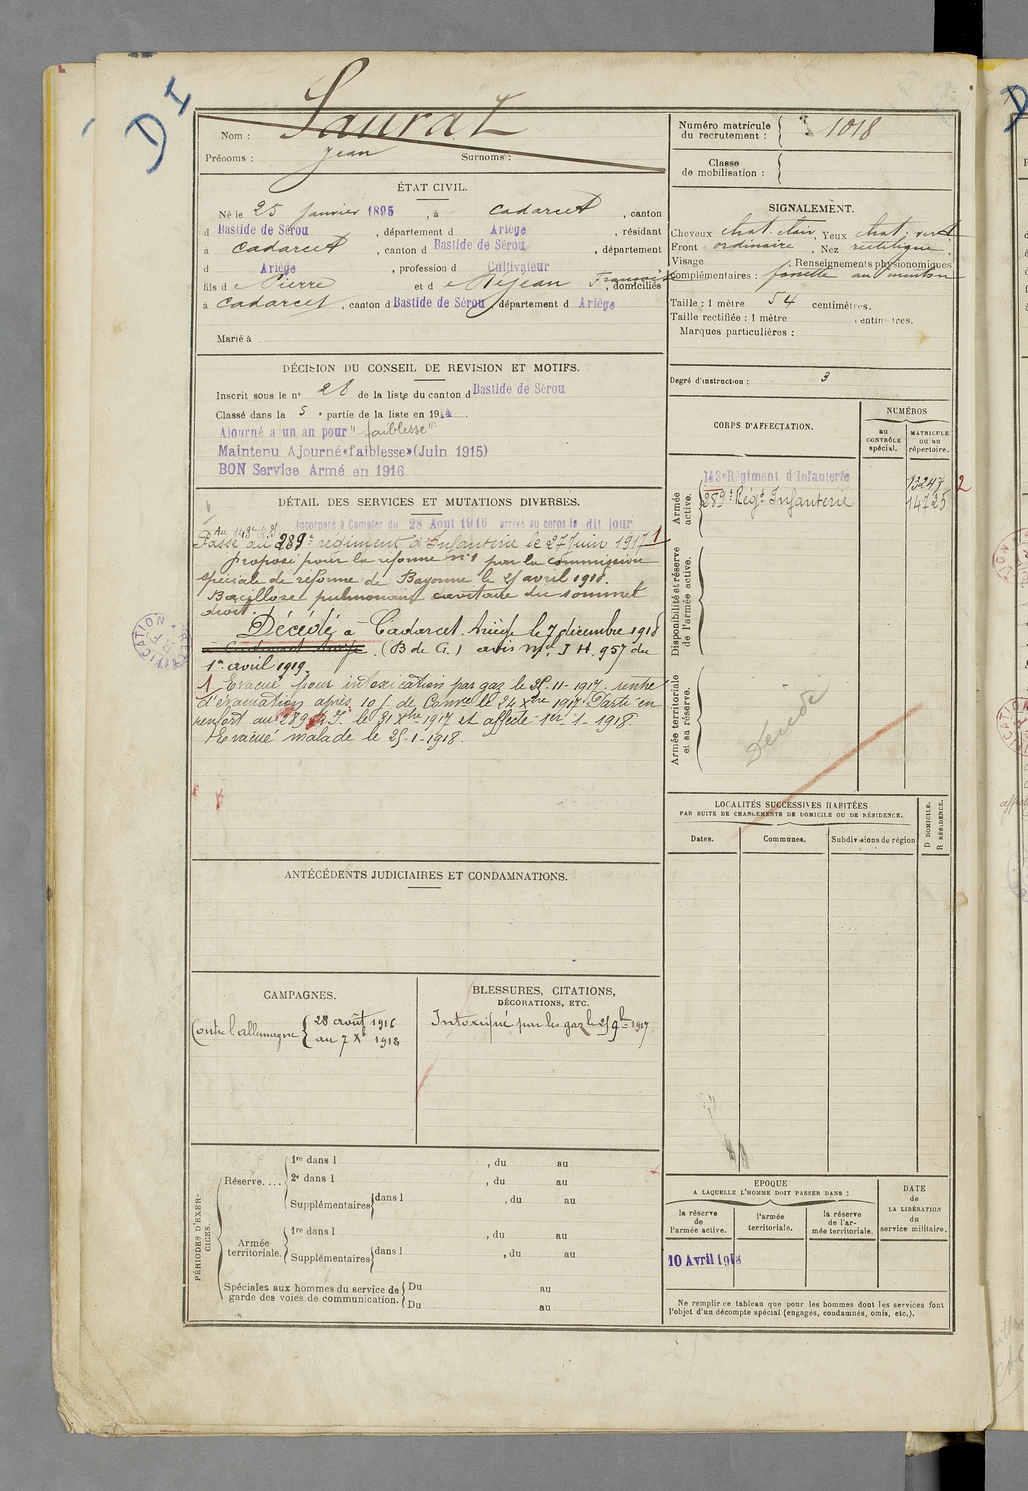 D I
Nom : Saurat
Prénoms : Jean Surnoms :
Numéro matricule du recrutement : 1018
Classe de mobilisation :
ÉTAT CIVIL.
Né le 25 Janvier 1895, à Cadarcet, canton
d Bastide de Sérou, département d Ariège, résidant
à Cadarcet, canton d Bastide de Sérou, département
d Ariège, profession d Cultivateur
fils d e Pierre et d e Réjean Françoise, domiciliés
à Cadarcet, canton d Bastide de Sérou, département d Ariège
Marié à
SIGNALEMENT.
Cheveux chat. clair, Yeux chat. vert
Front ordinaire, Nez rectiligne
Visage ; Renseignements physionomiques
complémentaires : fossette au menton
Taille : 1 mètre 54 centimètres.
Taille rectifiée : 1 mètre centimètres.
Marques particulières :
Degré d'instruction : 3
DÉCISION DU CONSEIL DE REVISION ET MOTIFS.
Inscrit sous le n° 28 de la liste du canton d Bastide de Sérou
Classé dans la 5e partie de la liste en 1914.
Ajourné a un an pour "faiblesse"
Maintenu Ajourné «faiblesse» (Juin 1915)
BON Service Armé en 1916
DÉTAIL DES SERVICES ET MUTATIONS DIVERSES.
Au 143e R.I. Incorporé à Compter du 28 Aout 1916 arrivé au corps le dit jour
Passé au 289e régiment d'Infanterie le 27 Juin 1917 1
Proposé pour la réforme n° 1 par la Commission
spéciale de réforme de Bayonne le 25 avril 1918.
Bacillose pulmonaire cavitaire du sommet
droit.
Décédé à Cadarcet, Ariège le 7 décembre 1918
à Cadarcet Ariège. (B de G.) avis Mre J H 957 du
1er avril 1919.
1 Evacué pour intoxication par gaz le 25-11-1917, rentré
d'évacuation après 10 j. de Conval le 24 Xbre 1917. Parti en
renfort au 289e R.I. le 31 Xbre 1917 et affecté 1er-1-1918.
Evacué malade le 25-1-1918.
CORPS D'AFFECTATION.
NUMÉROS
au CONTRÔLE spécial.
MATRICULE OU AU répertoire.
Armée active.
143e Régiment d'Infanterie 13247 2
289e Régt Infanterie 14725
Disponibilité et réserve de l'armée active.
Armée territoriale et sa réserve.
Décédé
LOCALITÉS SUCCESSIVES HABITÉES
PAR SUITE DE CHANGEMENTS DE DOMICILE OU DE RÉSIDENCE.
Dates.
Communes.
Subdivisions de région
D DOMICILE.
R RÉSIDENCE.
ANTÉCÉDENTS JUDICIAIRES ET CONDAMNATIONS.
CAMPAGNES.
Contre l'allemagne { 28 août 1916
au 7 Xre 1918
BLESSURES, CITATIONS,
DÉCORATIONS, ETC.
Intoxiqué par les gaz le 25 9bre 1917.
PÉRIODES D'EXERCICES.
Réserve....
1re dans l , du au
2e dans l , du au
Supplémentaires dans l , du au
Armée territoriale.
1re dans l , du au
Supplémentaires dans l , du au
Spéciales aux hommes du service de garde des voies de communication.
Du au
Du au
EPOQUE
A LAQUELLE L'HOMME DOIT PASSER DANS :
la réserve de l'armée active.
l'armée territoriale.
la réserve de l'armée territoriale.
DATE de LA LIBÉRATION du service militaire.
10 Avril 1918
Ne remplir ce tableau que pour les hommes dont les services font
l'objet d'un décompte spécial (engagés, condamnés, omis, etc.).